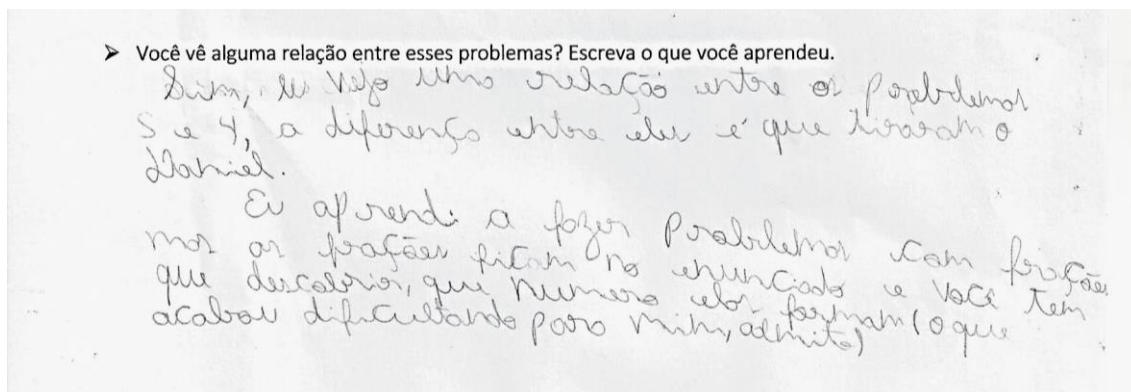 ➤ Você vê alguma relação entre esses problemas? Escreva o que você aprendeu.
Sim, eu vejo uma relação entre os Porblemas
5 e 4, a diferença entre eles é que tiraram o
Daniel.
Eu aprendi a fazer Problemas com frações
mas as frações ficam no enunciado e você tem
que descobrir, que número elas formam (o que
acabou dificultando para mim, admito)